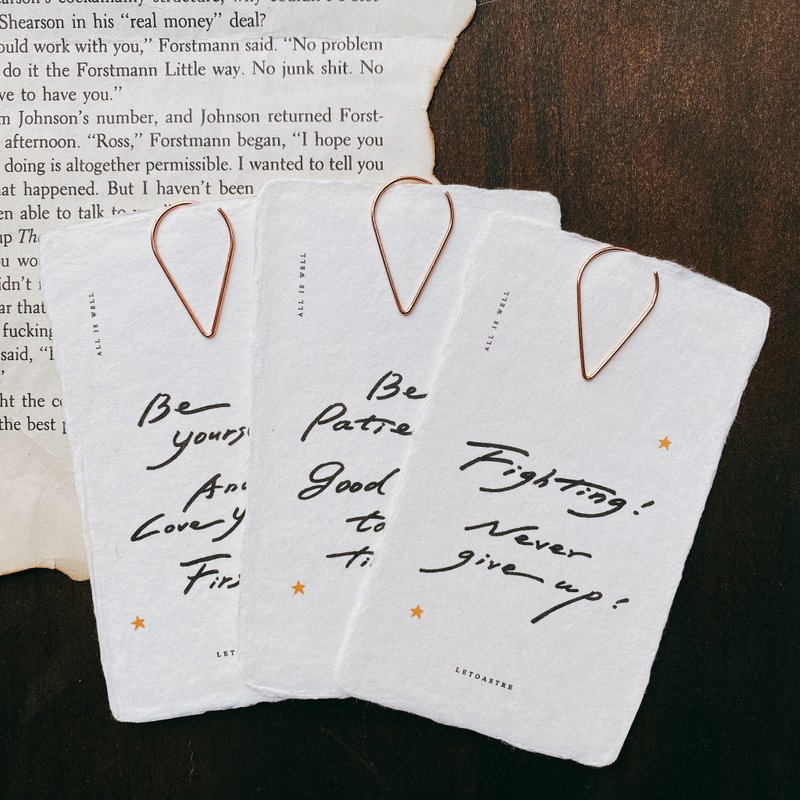 Shearson in his “real money” deal?
ould work with you,” Forstmann said. “No problem
do it the Forstmann Little way. No junk shit. No
ve to have you.”
m Johnson’s number, and Johnson returned Forst-
afternoon. “Ross,” Forstmann began, “I hope you
doing is altogether permissible. I wanted to tell you
hat happened. But I haven’t been
en able to talk to
up The
u wo
idn’t
ar that
fucking
said, “I
ght the co
the best p
ALL IS WELL
Be
yours
And
Love Y
Firs
LET
ALL IS WELL
Be
Patie
Good
to
ti
ALL IS WELL
Fighting!
Never
give up!
LETOASTRE